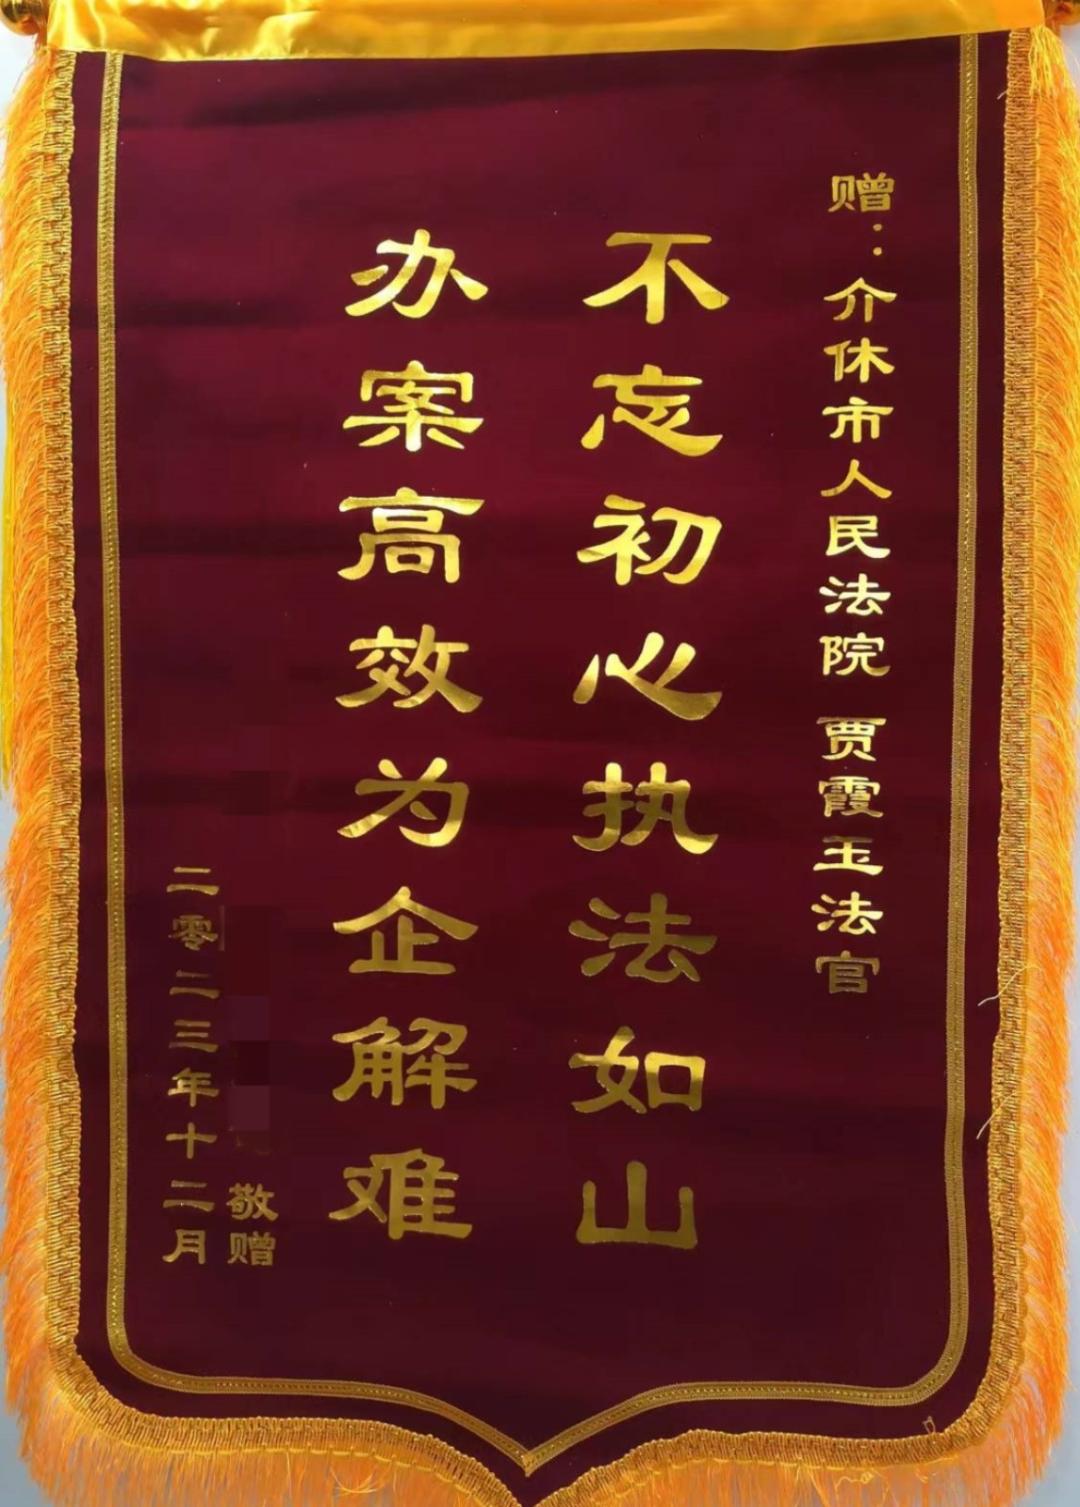 赠：介休市人民法院 贾霞玉法官
不忘初心执法如山
办案高效为企解难
敬赠
二零二三年十二月